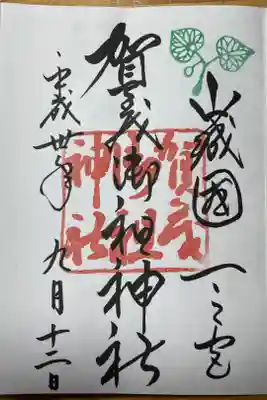 山城國 一之宮
賀茂御祖神社
賀茂
御祖
神社
平成卅年 九月十二日